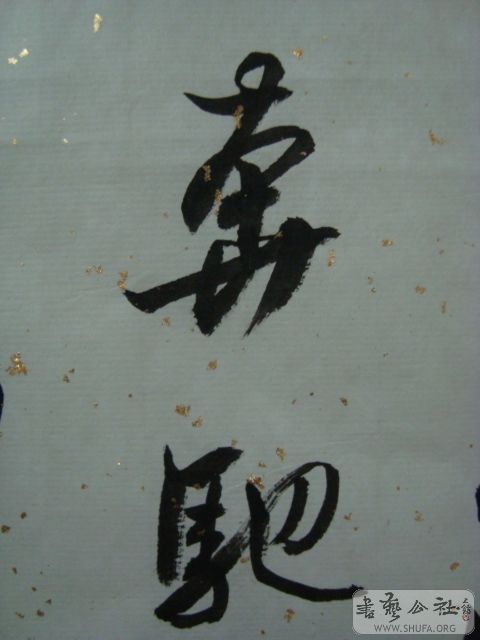 奔
馳
書藝公社
WWW.SHUFA.ORG